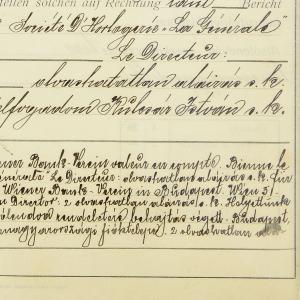 stellen solchen auf Rechnung laut Bericht
"Société D'Horlogerie "La Générale"
Le Directeur:
olvashatatlan aláirás s. k.
elfogadom Kulcsár István s. k.
Wiener Bank-Verein valeur en compte. Bienne le
Générale" Le Directeur: olvashatatlan aláirás s. k. für
Wiener Bank-Verein in Budapest. Wien 5/
Director": 2 olvashatlan aláirás s. k. Helyettünk
rendeletére behajtás végett. Budapest,
magyarországi fióktelepe). 2 olvashatlan alá